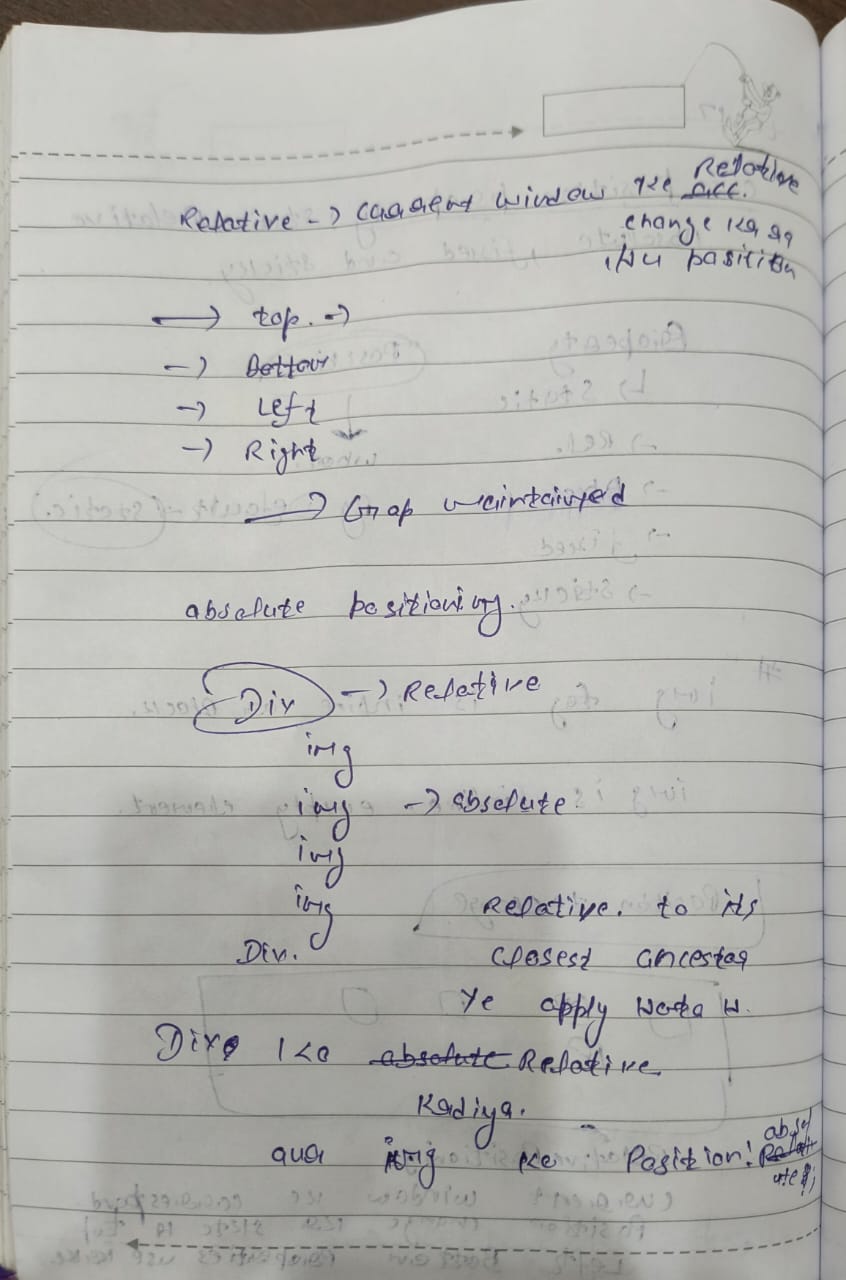 Relative -> current window ke Relative
acc. change kar
position
-> top. ->
-> Bottom
-> Left
-> Right
-> Gap maintained
absolute positioning.
Div -> Relative
img
img -> absolute
img
img
Relative. to its
Div. closest ancestor
Ye apply hota H.
Div ko absolute Relative
Kadiya.
aur img ke Position: absolute;